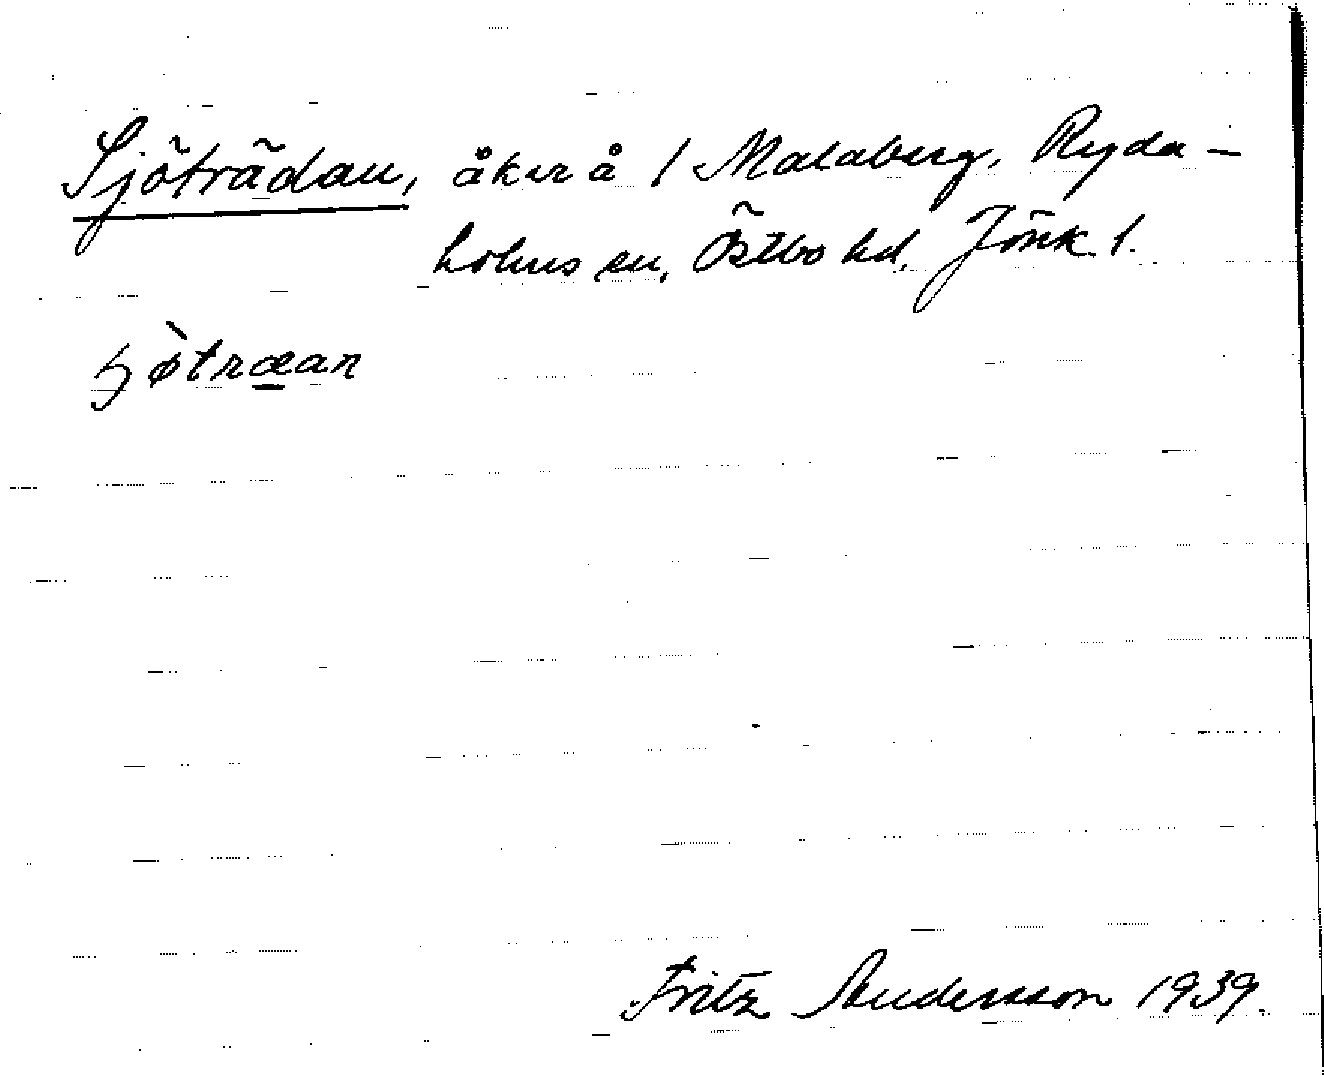 Sjöträdan, åker å 1 Malaberg, Ryda-
holms sn, Östbo hd, Jönk. l.
ɧø̀træan
Fritz Andersson 1939.